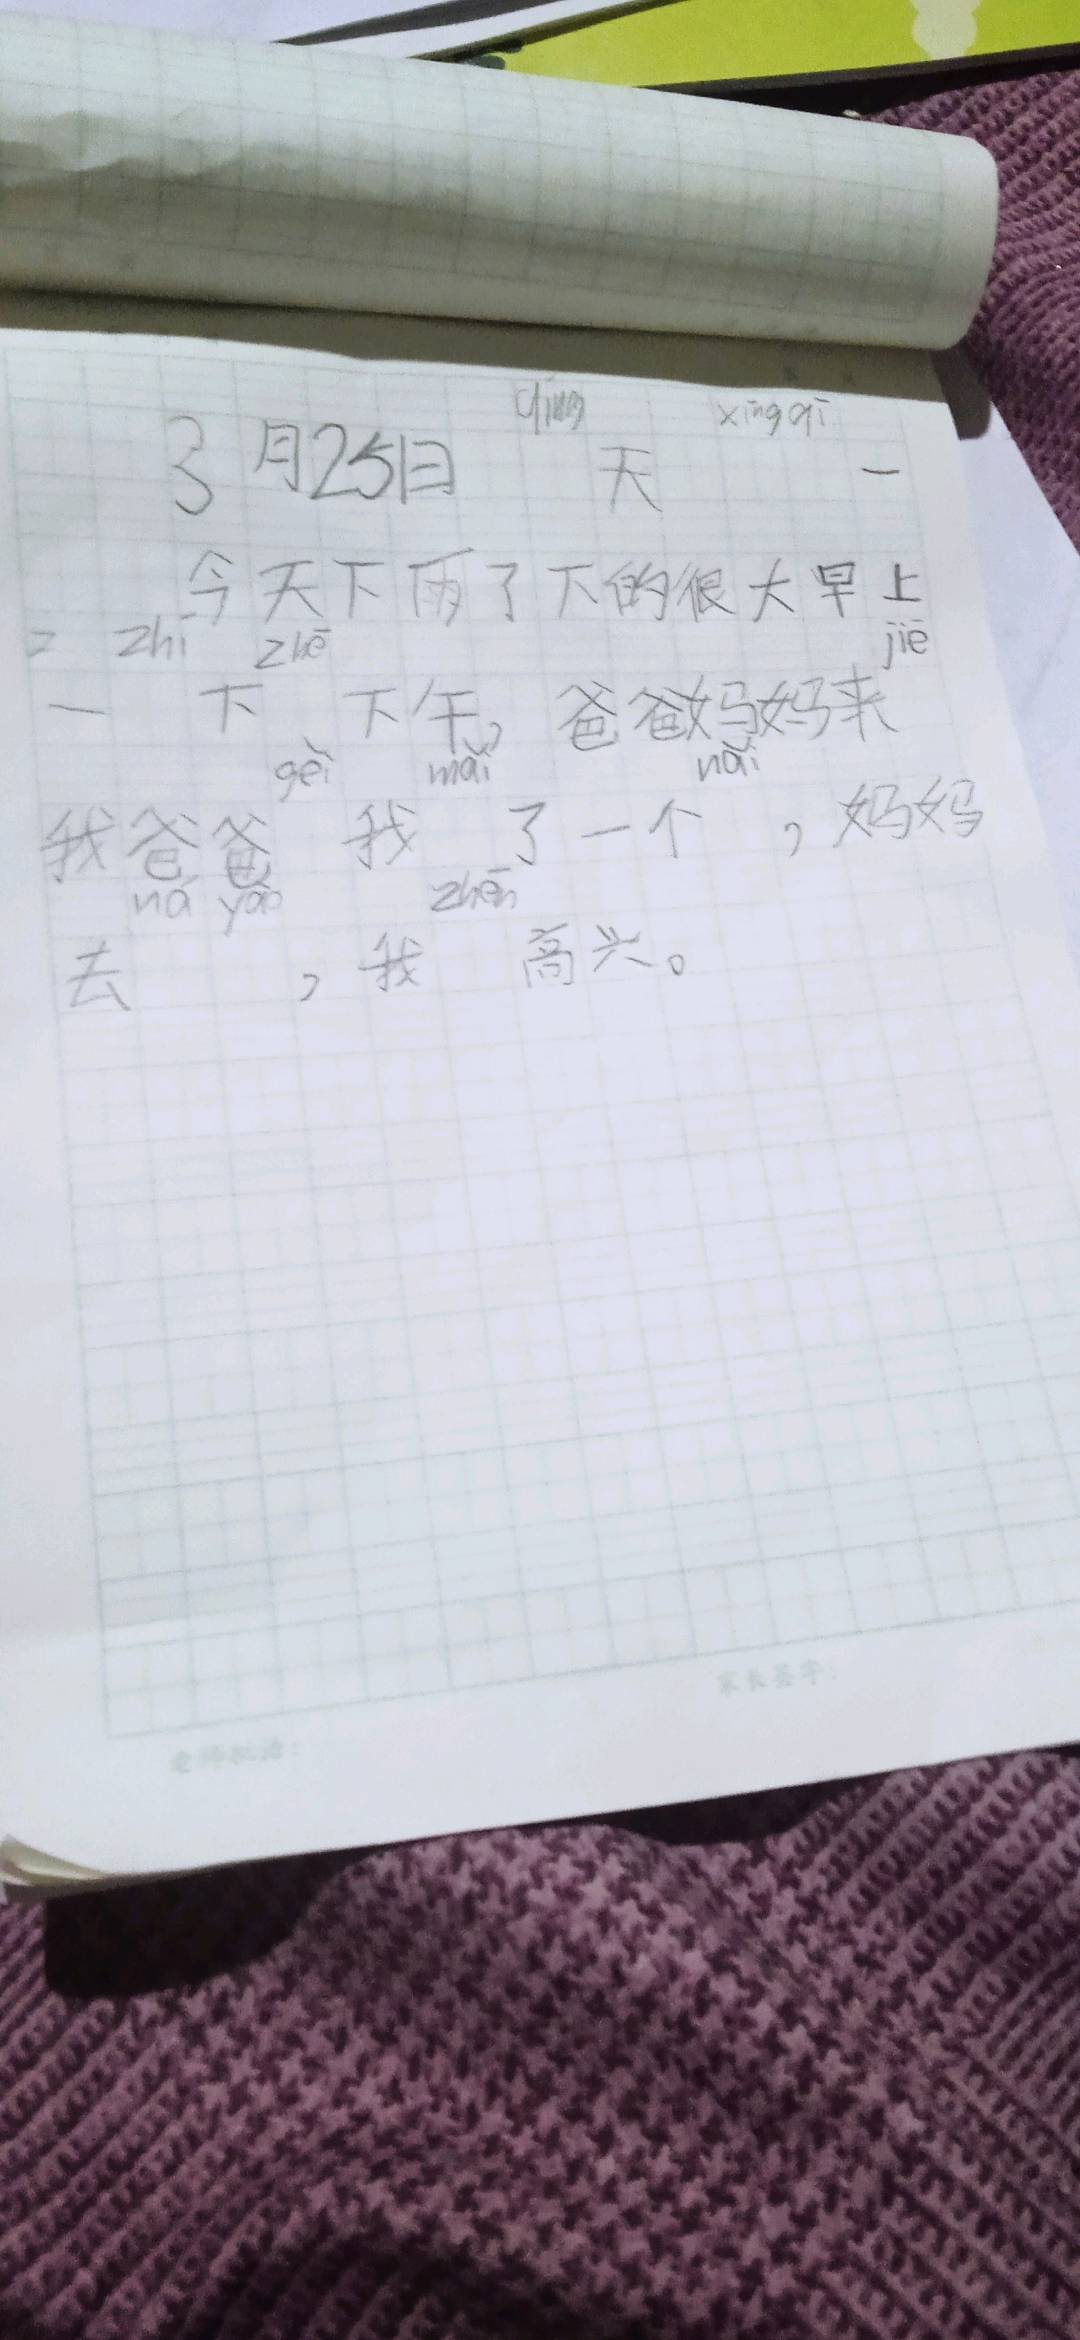 qíng xīng qī
3月25日 天 一
今天下雨了下的很大早上
zhí zhē jiē
一 下 下午，爸爸妈妈来
gěi mǎi nǎi
我爸爸 我 了一个 ，妈妈
ná yào zhēn
去 ，我 高兴。
家长签字：
老师批语：